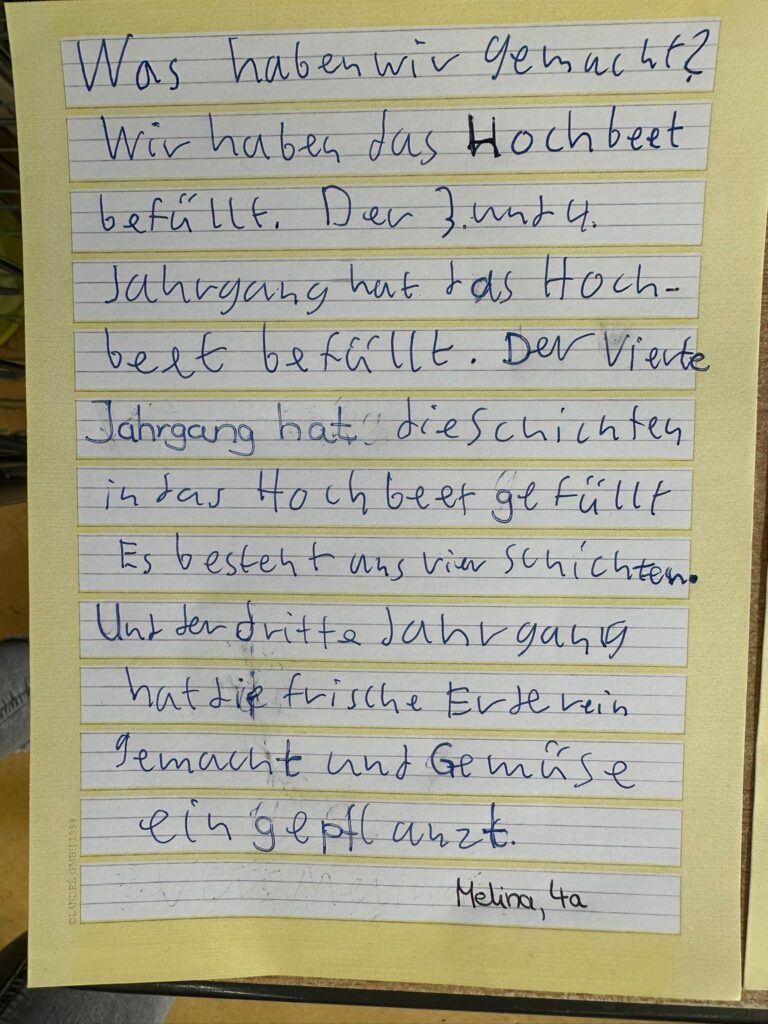 Was haben wir gemacht?
Wir haben das Hochbeet
befüllt. Der 3. und 4.
Jahrgang hat das Hoch-
beet befüllt. Der Vierte
Jahrgang hat die Schichten
in das Hochbeet gefüllt
Es besteht aus vier schichten.
Und der dritte Jahrgang
hat die frische Erde rein
gemacht und Gemüse
eingepflanzt.
Melina, 4a
©LANDRÉ GMBH 1999